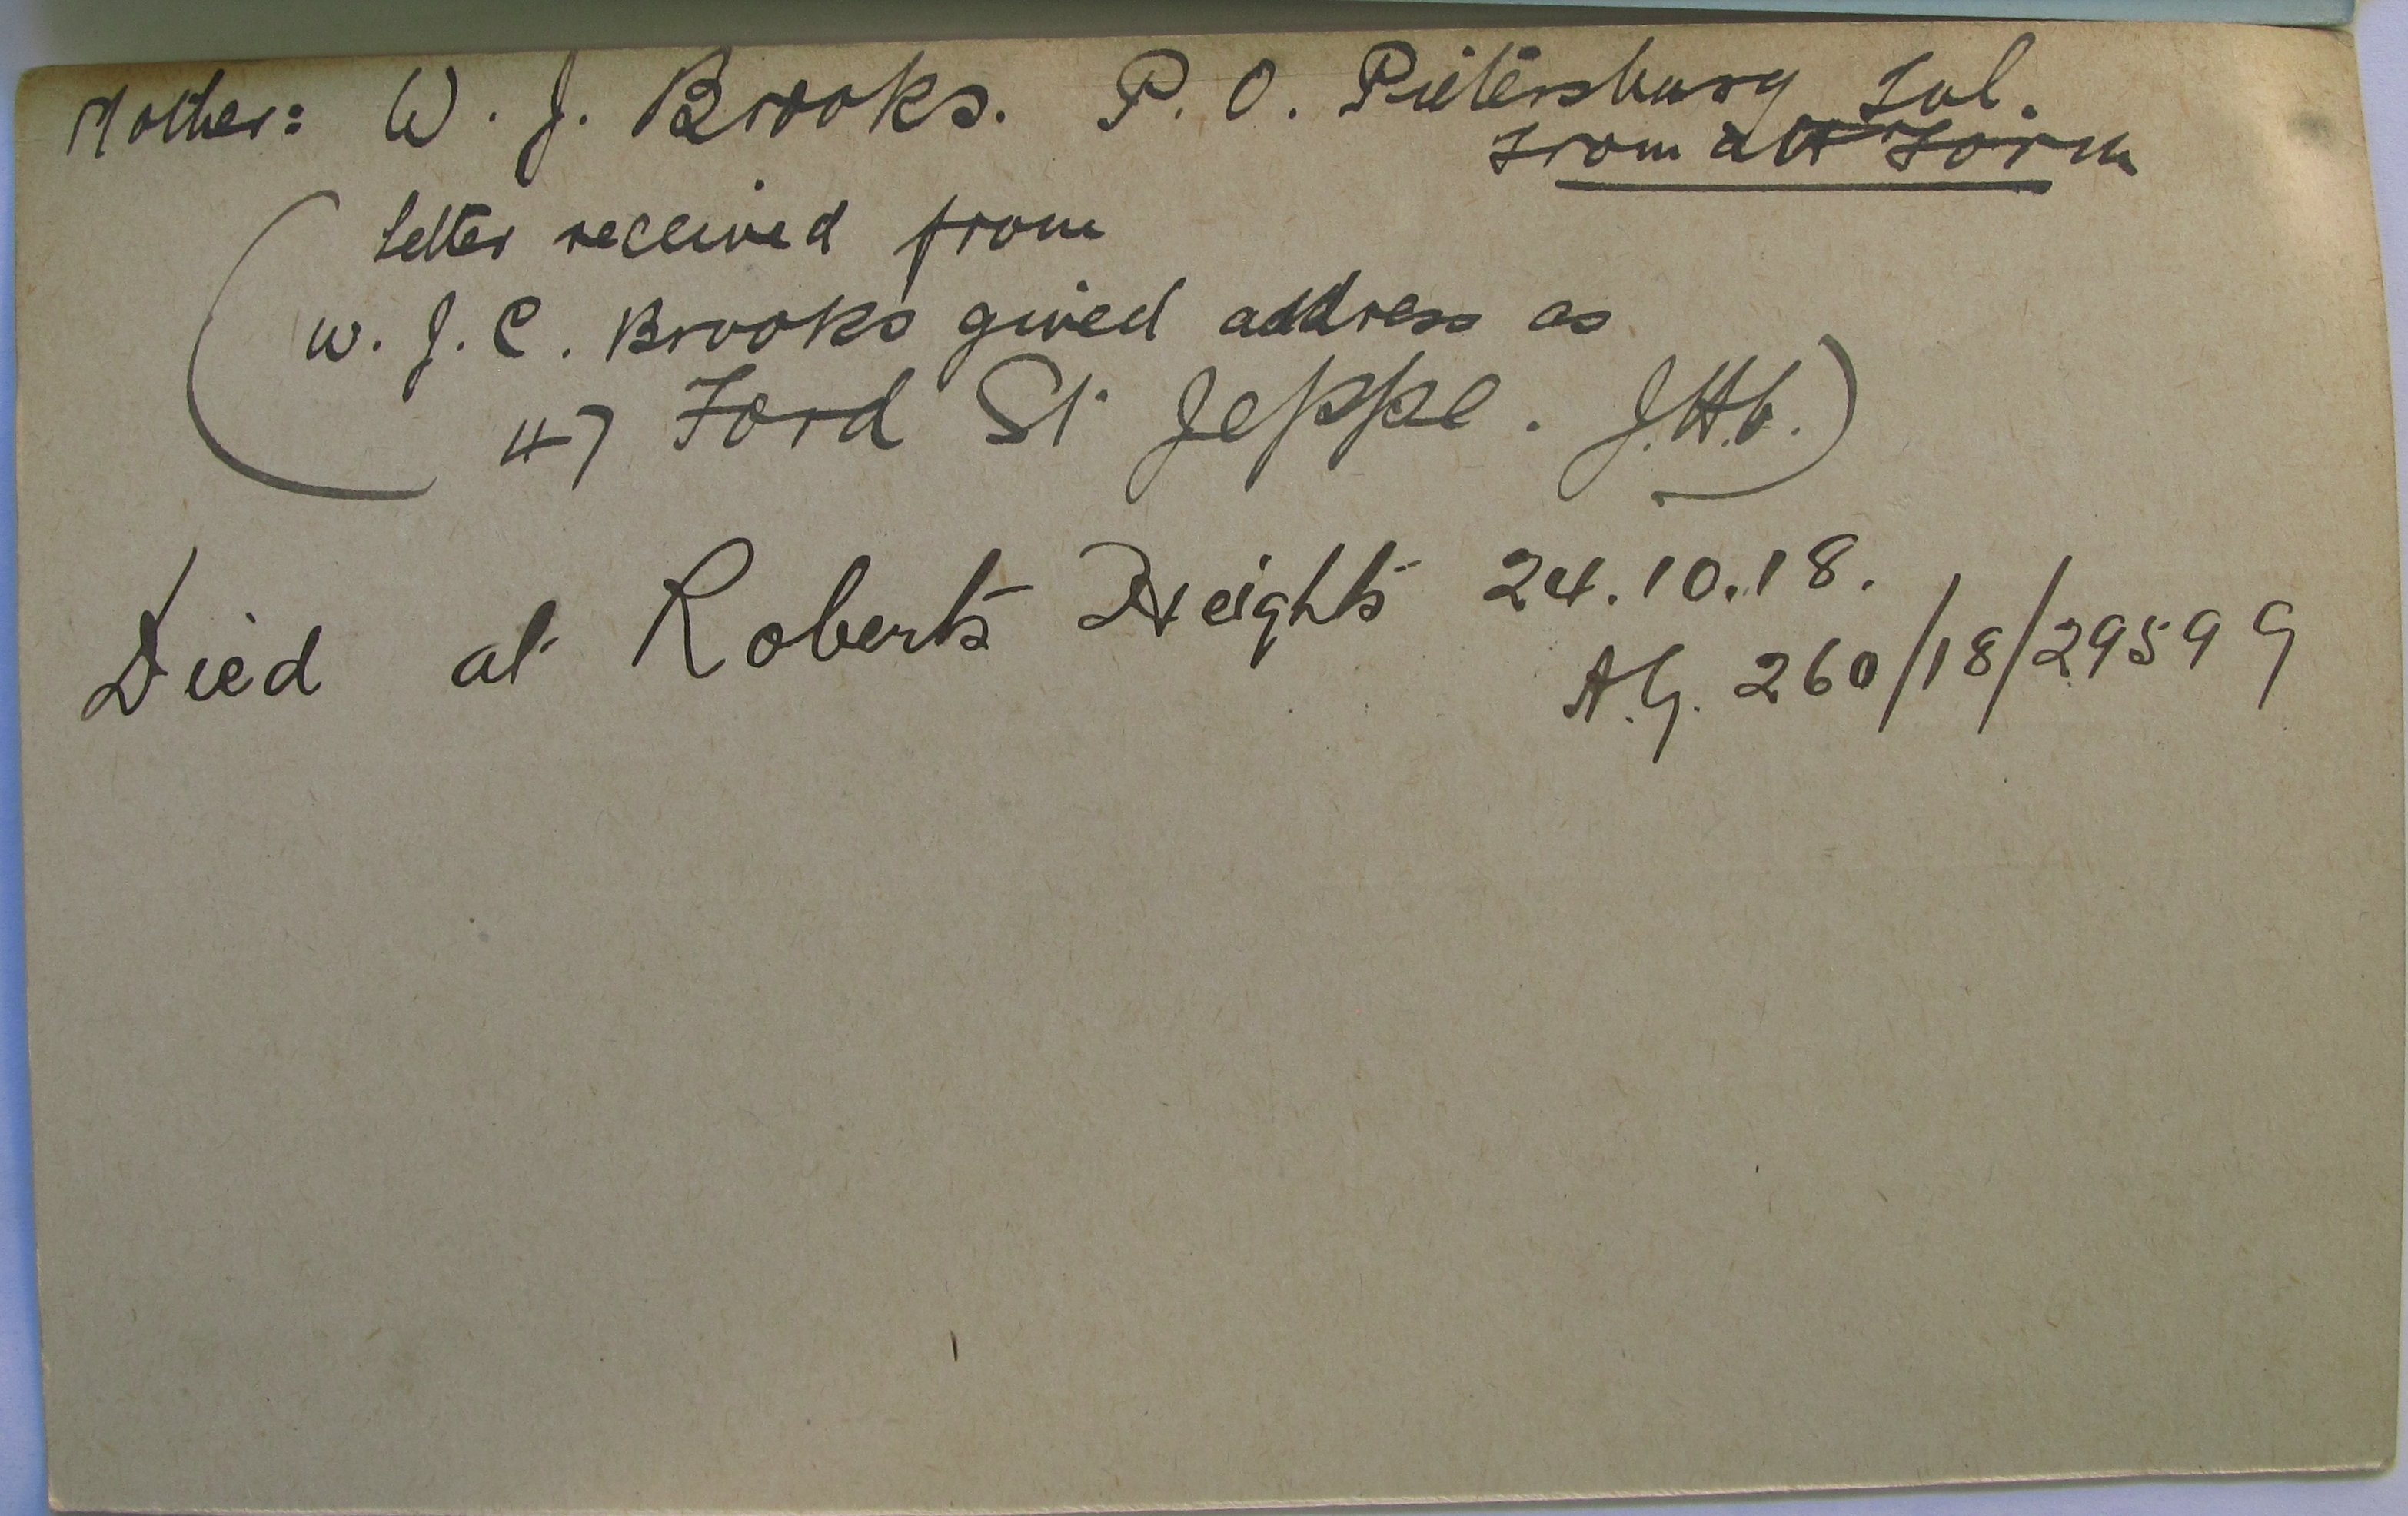 Mother: W. J. Brooks. P. O. Pietersburg Tvl.
from att Form
(Letter received from
W. J. C. Brooks gived address as
47 Ford St Jeppe. J.H.b.)
Died at Roberts Heights 24.10.18.
A.G. 260/18/29599